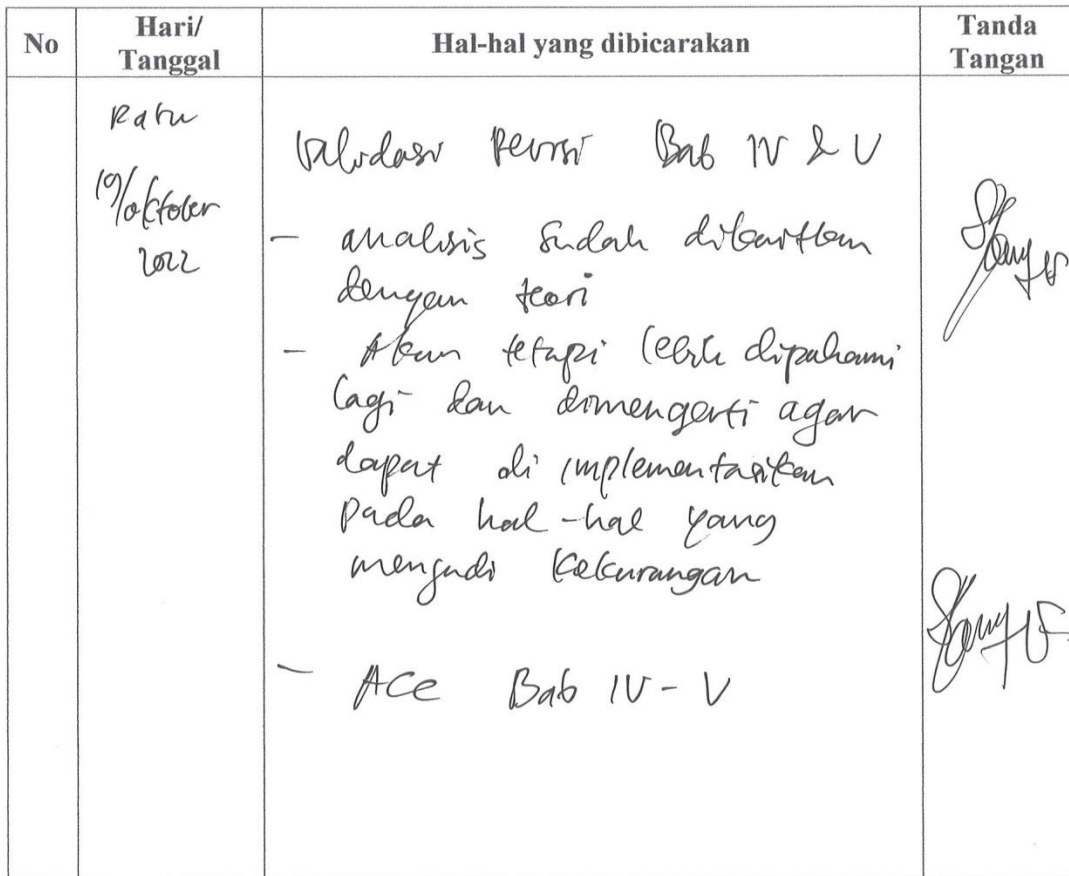 No
Hari/
Tanggal
Hal-hal yang dibicarakan
Tanda
Tangan
Rabu
19/oktober
2022
Validasi Revisi Bab IV & V
- analisis sudah dikaitkan
dengan teori
- Akan tetapi lebih dipahami
lagi dan dimengerti agar
dapat di implementasikan
pada hal-hal yang
menjadi kekurangan
- ACC Bab IV - V